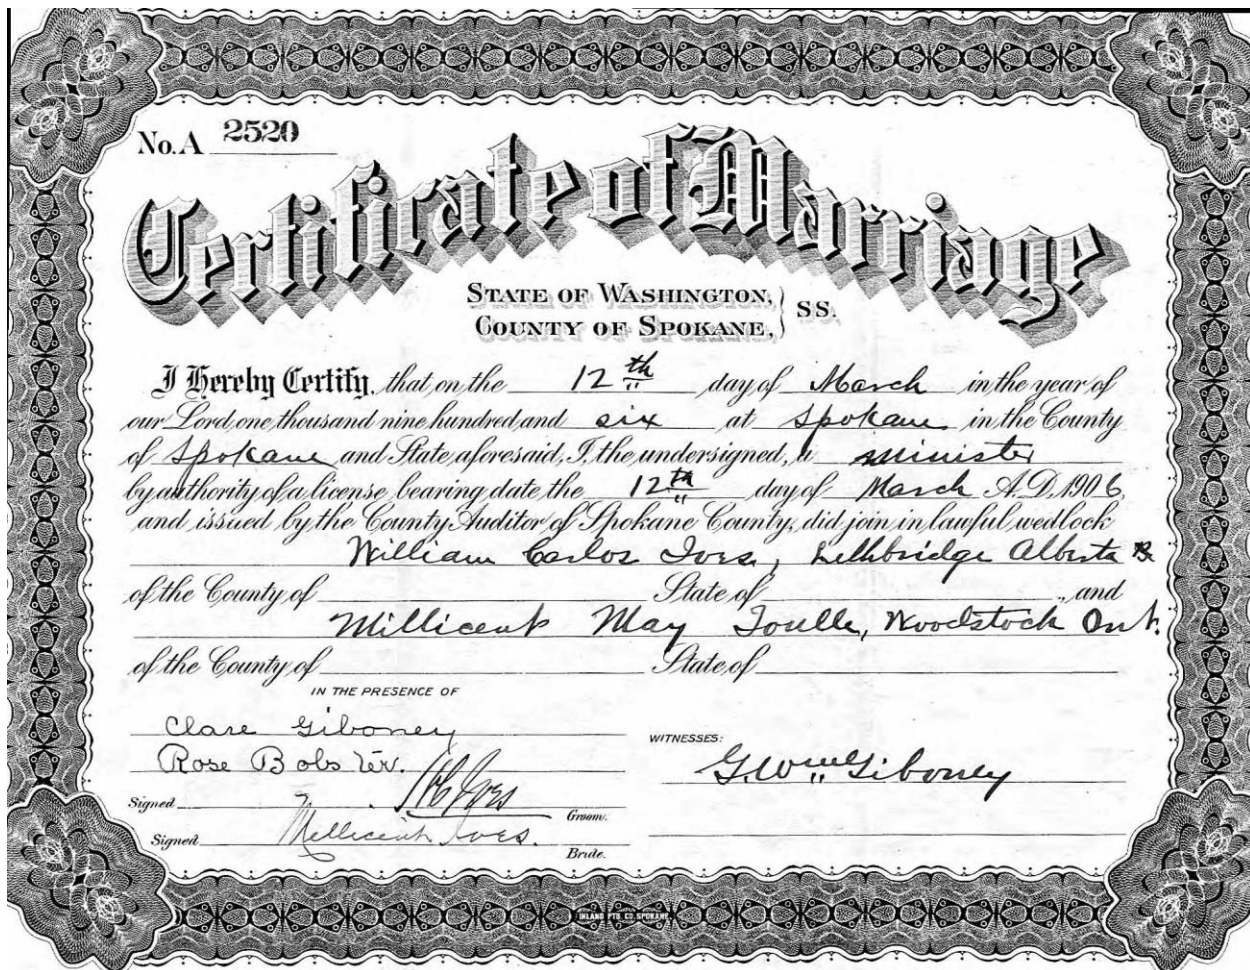 No. A 2520
Certificate of Marriage
STATE OF WASHINGTON, } SS.
COUNTY OF SPOKANE, }
I Hereby Certify, that on the 12th day of March in the year of
our Lord, one thousand nine hundred and six at Spokane in the County
of Spokane and State aforesaid, I, the undersigned, a minister
by authority of a license bearing date the 12th day of March A.D. 1906,
and issued by the County Auditor of Spokane County, did join in lawful wedlock
William Carlos Ives, Lethbridge Alberta
of the County of State of , and
Millicent May Woodstock Ont.
of the County of State of
IN THE PRESENCE OF
Clare Giboney
WITNESSES:
Rose
G. Wm Giboney
Signed Ives Groom.
Signed Millicent Ives. Bride.
INLAND PTG. CO. SPOKANE.